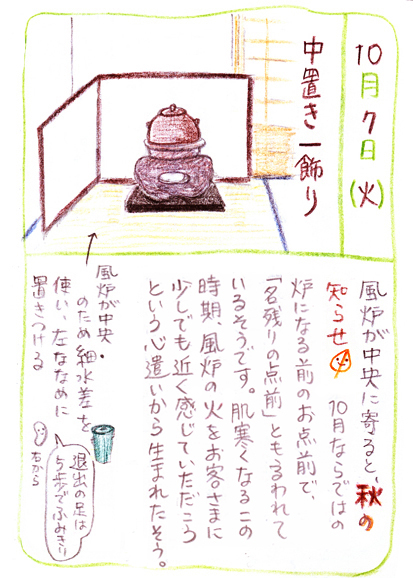 10月7日(火)
中置き一飾り
風炉が中央に寄ると、秋の
知らせ 10月ならではの
炉になる前のお点前で、
「名残りの点前」ともゆわれて
いるそうです。肌寒くなるこの
時期、風炉の火をお客さまに
少しでも近く感じていただこう
という心遣いから生まれたそう。
風炉が中央・
のため細水差を
使い、左ななめに
置きつける
退出の足は
5歩でふみきり
右から